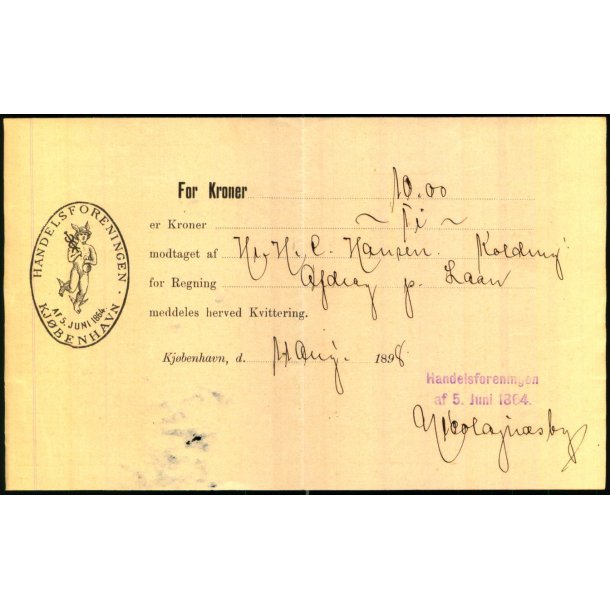 HANDELSFORENINGEN
AF 5. JUNI 1864.
KJØBENHAVN.
For Kroner 10.00
er Kroner ~ Ti ~
modtaget af Hr. H. C. Hansen. Kolding
for Regning Afdrag p. Laan
meddeles herved Kvittering.
Kjøbenhavn, d. Aug. 1898
Handelsforeningen
af 5. Juni 1864.